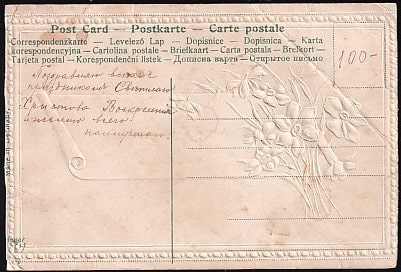 Post Card — Postkarte — Carte postale
Correspondenzkarte — Levelező Lap — Dopisnice — Dopisnica — Karta
Correspondencyjna — Cartolina postale — Briefkaart — Carta postala — Brefkort —
Tarjeta postal — Korespondenční lístek — Дописна карта — Открытое письмо
100-
Поздравляю
праздником Святаго
Христова Воскресения
и желаю всего
наилучшаго